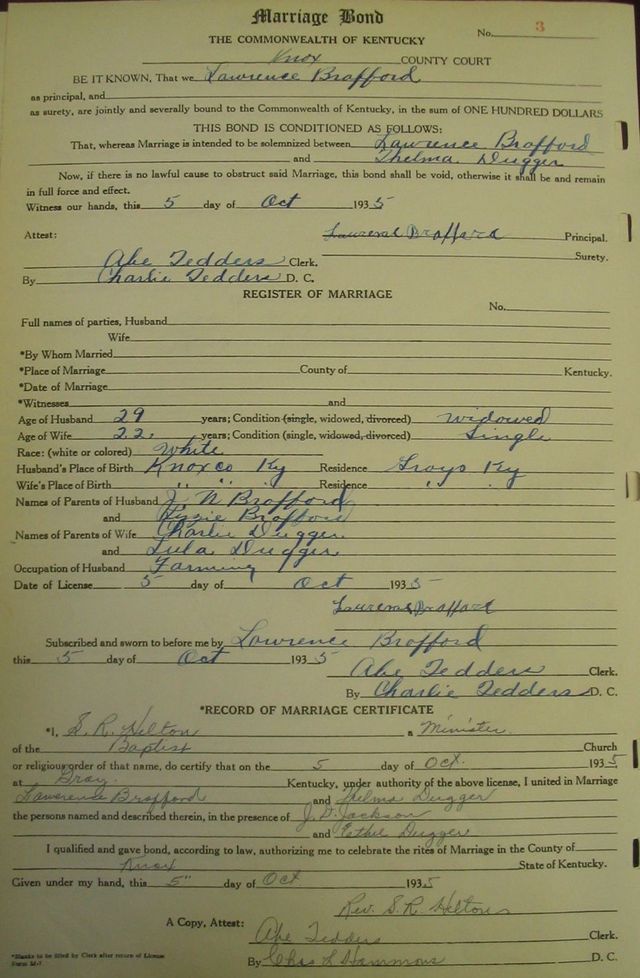 Marriage Bond
No. 3
THE COMMONWEALTH OF KENTUCKY
Knox COUNTY COURT
BE IT KNOWN, That we Lawrence Brafford
as principal, and
as surety, are jointly and severally bound to the Commonwealth of Kentucky, in the sum of ONE HUNDRED DOLLARS
THIS BOND IS CONDITIONED AS FOLLOWS:
That, whereas Marriage is intended to be solemnized between Lawrence Brafford
and Thelma Dugger
Now, if there is no lawful cause to obstruct said Marriage, this bond shall be void, otherwise it shall be and remain
in full force and effect.
Witness our hands, this 5 day of Oct 1935
Attest: Brafford Principal.
Abe Tedders Clerk. Surety.
By Charlie Tedders D. C.
REGISTER OF MARRIAGE
No.
Full names of parties, Husband
Wife
*By Whom Married
*Place of Marriage County of Kentucky.
*Date of Marriage
*Witnesses and
Age of Husband 29 years; Condition (single, widowed, divorced) widowed
Age of Wife 22. years; Condition (single, widowed, divorced) Single
Race: (white or colored) White
Husband's Place of Birth Knox co Ky Residence Grays Ky
Wife's Place of Birth " " " Residence " "
Names of Parents of Husband J. N Brafford
and Lizzie Brafford
Names of Parents of Wife Charlie Dugger
and Lula Dugger
Occupation of Husband Farming
Date of License 5 day of Oct 1935
Brafford
Subscribed and sworn to before me by Lawrence Brafford
this 5 day of Oct 1935
Abe Tedders Clerk.
By Charlie Tedders D. C.
*RECORD OF MARRIAGE CERTIFICATE
*I, S. R. Hilton a Minister
of the Baptist Church
or religious order of that name, do certify that on the 5 day of Oct. 1935
at Gray. Kentucky, under authority of the above license, I united in Marriage
Lawerence Brafford and Thelma Dugger
the persons named and described therein, in the presence of J. D. Jackson
and Ethie Dugger
I qualified and gave bond, according to law, authorizing me to celebrate the rites of Marriage in the County of
Knox State of Kentucky.
Given under my hand, this 5" day of Oct 1935
Rev. S. R. Hilton
A Copy, Attest: Abe Tedders Clerk.
By Chas L Hammons D. C.
*Blanks to be filled by Clerk after return of License
Form M-7